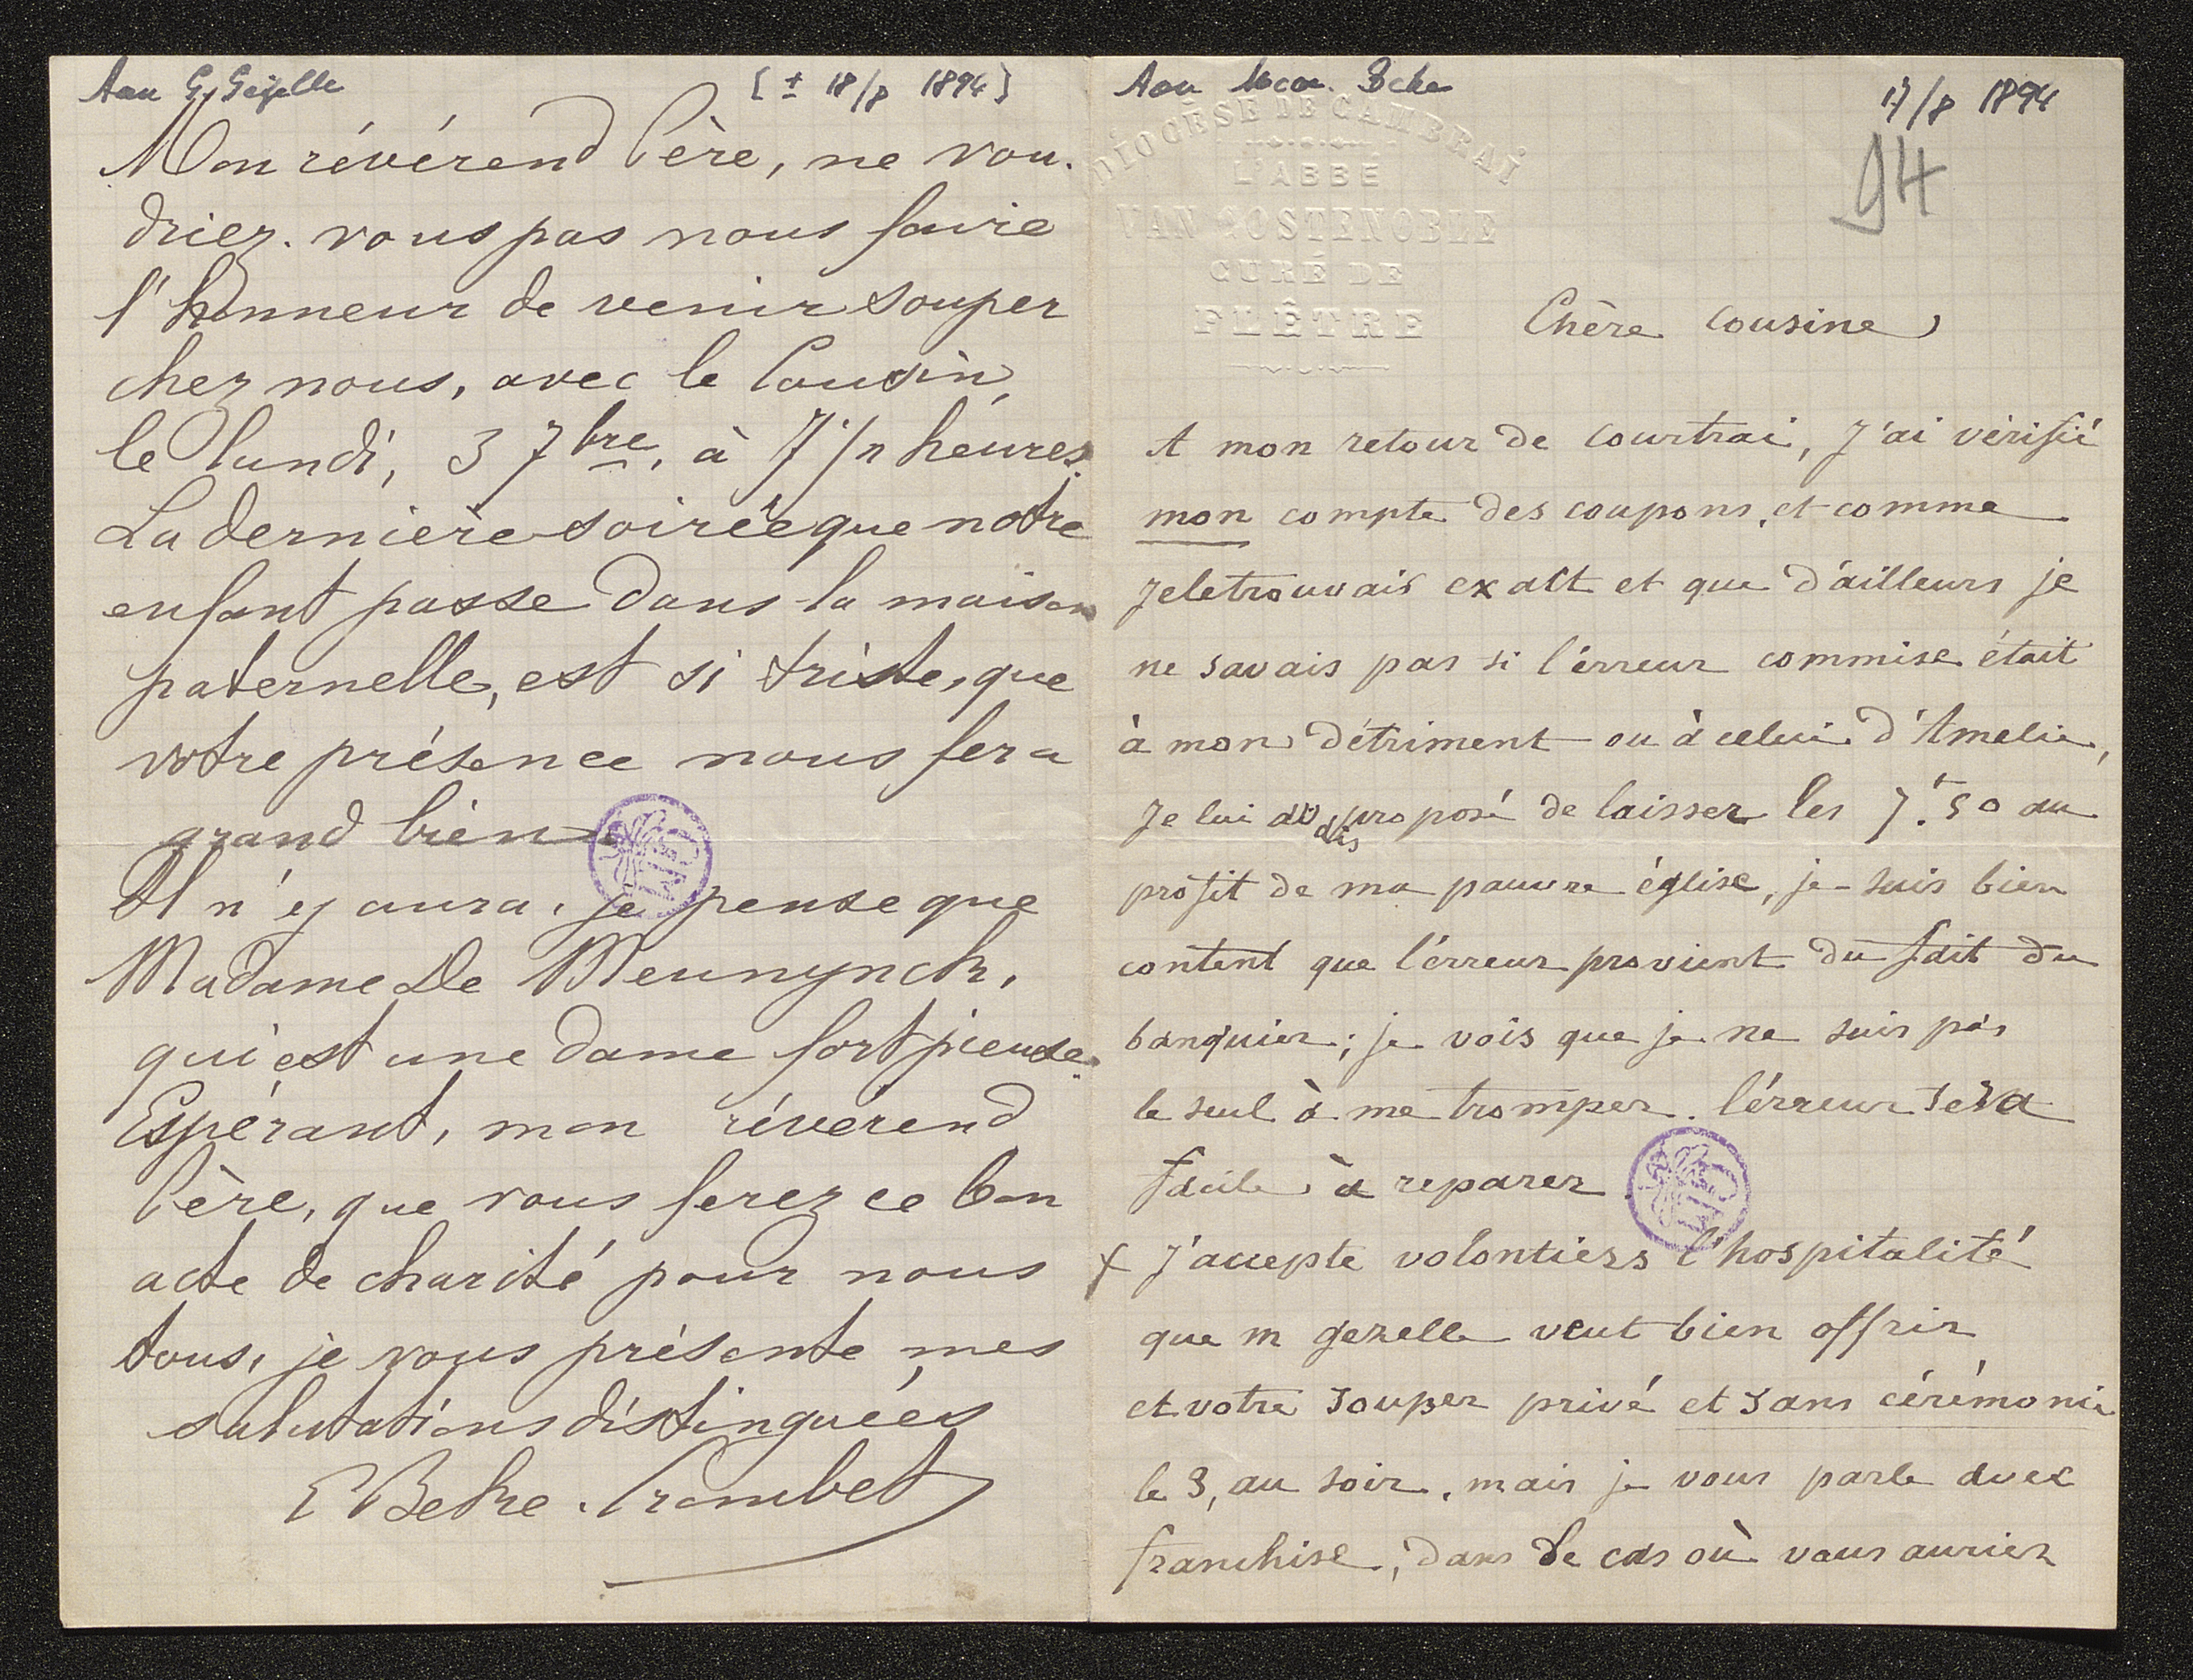 Aan G. Gezelle [± 18/8 1894]
Mon révérend Père, ne vou-
driez-vous pas nous faire
l'honneur de venir souper
chez nous, avec le Cousin,
le lundi, 3 7bre, à 7 1/2 heures.
La dernière soirée que notre
enfant passe dans la maison
paternelle, est si triste, que
votre présence nous fera
grand bien.
Il n'y aura, je pense que
Madame De Meunynck,
qui est une dame fort pieuse.
Espérant, mon révérend
Père, que vous ferez ce bon
acte de charité pour nous
tous, je vous présente mes
salutations distinguées
E Bethe. Crombet
Aan
17/8 1894
94
DIOCÈSE DE CAMBRAI
L'ABBÉ
VAN COSTENOBLE
CURÉ DE
FLÊTRE
Chère Cousine,
A mon retour de Courtrai, J'ai vérifié
mon compte des coupons, et comme
je le trouvais exact et que d'ailleurs je
ne savais pas si l'érreur commise était
à mon détriment ou à celui d'Amelie,
Je lui ai proposé de laisser les 7f.50 au
profit de ma pauvre église, je suis bien
content que l'érreur provient du fait du
banquier; je vois que je ne suis pas
le seul à me tromper. l'érreur sera
facile à reparer.
x J'accepte volontiers l'hospitalité
que m gezelle veut bien offrir
et votre souper privé et sans cérémonie
le 3, au soir, mais je vous parle avec
franchise, dans le cas où vous auriez